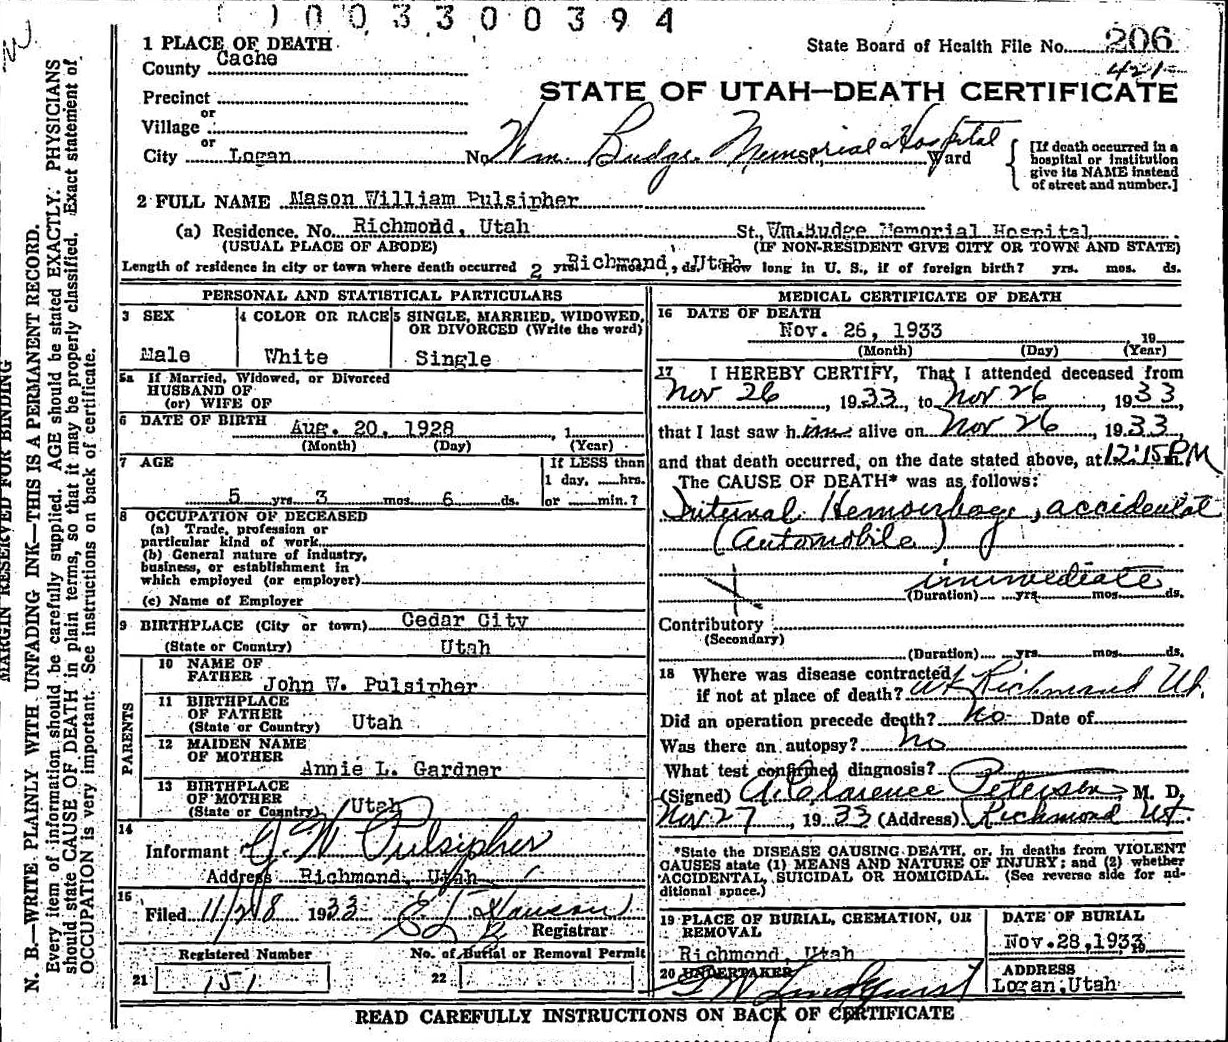 1003300394
1 PLACE OF DEATH
State Board of Health File No. 206
County Cache
421
STATE OF UTAH—DEATH CERTIFICATE
Precinct
or
Village
or
City Logan No. Wm. Budge Memorial Hospital St., Ward
[If death occurred in a hospital or institution give its NAME instead of street and number.]
2 FULL NAME Mason William Pulsipher
(a) Residence. No. Richmond, Utah St. Wm.Budge Memorial Hospital
(USUAL PLACE OF ABODE) (IF NON-RESIDENT GIVE CITY OR TOWN AND STATE)
Length of residence in city or town where death occurred 2 yrs. mos. ds. Richmond, Utah How long in U. S., if of foreign birth? yrs. mos. ds.
PERSONAL AND STATISTICAL PARTICULARS
3 SEX
Male
4 COLOR OR RACE
White
5 SINGLE, MARRIED, WIDOWED, OR DIVORCED (Write the word)
Single
5a If Married, Widowed, or Divorced
HUSBAND OF
(or) WIFE OF
6 DATE OF BIRTH Aug. 20, 1928 , 1
(Month) (Day) (Year)
7 AGE
5 yrs. 3 mos. 6 ds.
If LESS than
1 day, hrs.
or min.?
8 OCCUPATION OF DECEASED
(a) Trade, profession or
particular kind of work
(b) General nature of industry,
business, or establishment in
which employed (or employer)
(c) Name of Employer
9 BIRTHPLACE (City or town) Cedar City
(State or Country) Utah
PARENTS
10 NAME OF
FATHER John W. Pulsipher
11 BIRTHPLACE
OF FATHER
(State or Country) Utah
12 MAIDEN NAME
OF MOTHER
Annie L. Gardner
13 BIRTHPLACE
OF MOTHER
(State or Country) Utah
14
Informant J. W. Pulsipher
Address Richmond, Utah
15
Filed 11/28 1933
Registrar
Registered Number
21 151
No. of Burial or Removal Permit
22
MEDICAL CERTIFICATE OF DEATH
16 DATE OF DEATH
Nov. 26, 1933 19
(Month) (Day) (Year)
17 I HEREBY CERTIFY, That I attended deceased from
Nov 26, 1933, to Nov 26, 1933,
that I last saw him alive on Nov 26, 1933,
and that death occurred, on the date stated above, at 12:15 PM m.
The CAUSE OF DEATH* was as follows:
Internal Hemorrhage, accidental
(Automobile)
immediate
(Duration) yrs. mos. ds.
Contributory
(Secondary)
(Duration) yrs. mos. ds.
18 Where was disease contracted
if not at place of death? At Richmond Ut.
Did an operation precede death? No Date of
Was there an autopsy? No
What test confirmed diagnosis?
(Signed) A. Clarence Peterson, M. D.
Nov 27, 1933 (Address) Richmond Ut.
*State the DISEASE CAUSING DEATH, or, in deaths from VIOLENT
CAUSES state (1) MEANS AND NATURE OF INJURY; and (2) whether
ACCIDENTAL, SUICIDAL OR HOMICIDAL. (See reverse side for ad-
ditional space.)
19 PLACE OF BURIAL, CREMATION, OR
REMOVAL
Richmond, Utah
DATE OF BURIAL
Nov.28,1933 19
20 UNDERTAKER
Lindquist
ADDRESS
Logan,Utah
READ CAREFULLY INSTRUCTIONS ON BACK OF CERTIFICATE
MARGIN RESERVED FOR BINDING
N. B.—WRITE PLAINLY WITH UNFADING INK—THIS IS A PERMANENT RECORD.
Every item of information should be carefully supplied. AGE should be stated EXACTLY. PHYSICIANS
should state CAUSE OF DEATH in plain terms, so that it may be properly classified. Exact statement of
OCCUPATION is very important. See instructions on back of certificate.